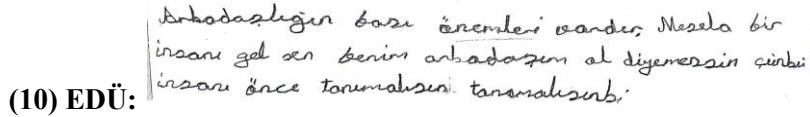 Arkadaşlığın bazı önemleri vardır, Mesela bir
insanı gel sen benim arkadaşım ol diyemezsin çünki
(10) EDÜ: insanı önce tanımalısın tanımalısınki